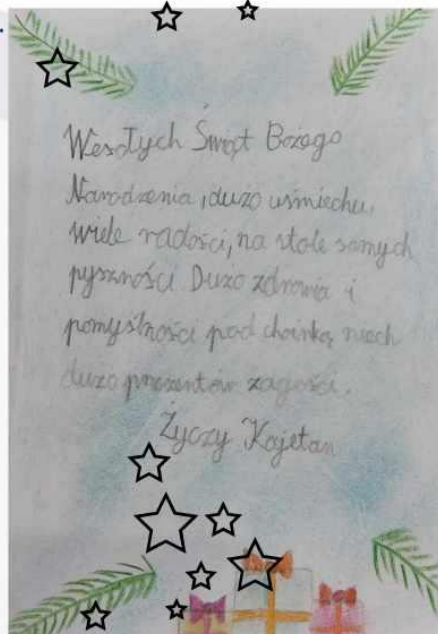 Wesołych Świąt Bożego
Narodzenia, dużo uśmiechu,
wiele radości, na stole samych
pyszności Dużo zdrowia i
pomyślności pod choinką niech
dużo prezentów zagości.
Życzy Kajetan